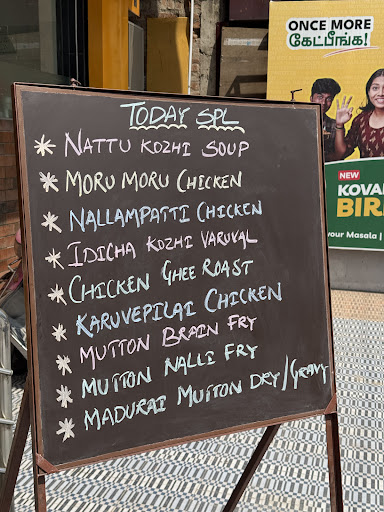 TODAY SPL
* NATTU KOZHI SOUP
* MORU MORU CHICKEN
* NALLAMPATTI CHICKEN
* IDICHA KOZHI VARUVAL
* CHICKEN GHEE ROAST
* KARUVEPILAI CHICKEN
* MUTTON BRAIN FRY
* MUTTON NALLI FRY
* MADURAI MUTTON DRY/GRAVY
ONCE MORE
கேட்பீங்க!
NEW
KOVA
BIR
your Masala |